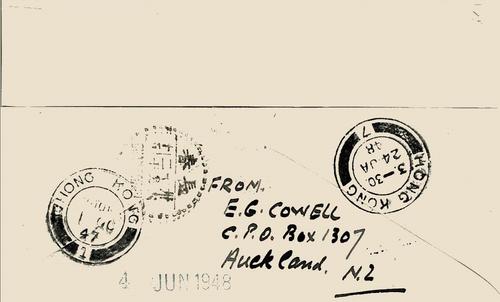 HONG KONG
1
47
FROM.
E.G. COWELL
C.P.O. Box 1307
Auckland.
N.Z
HONG KONG
3.-30
24 JA
48
7
4 JUN 1948